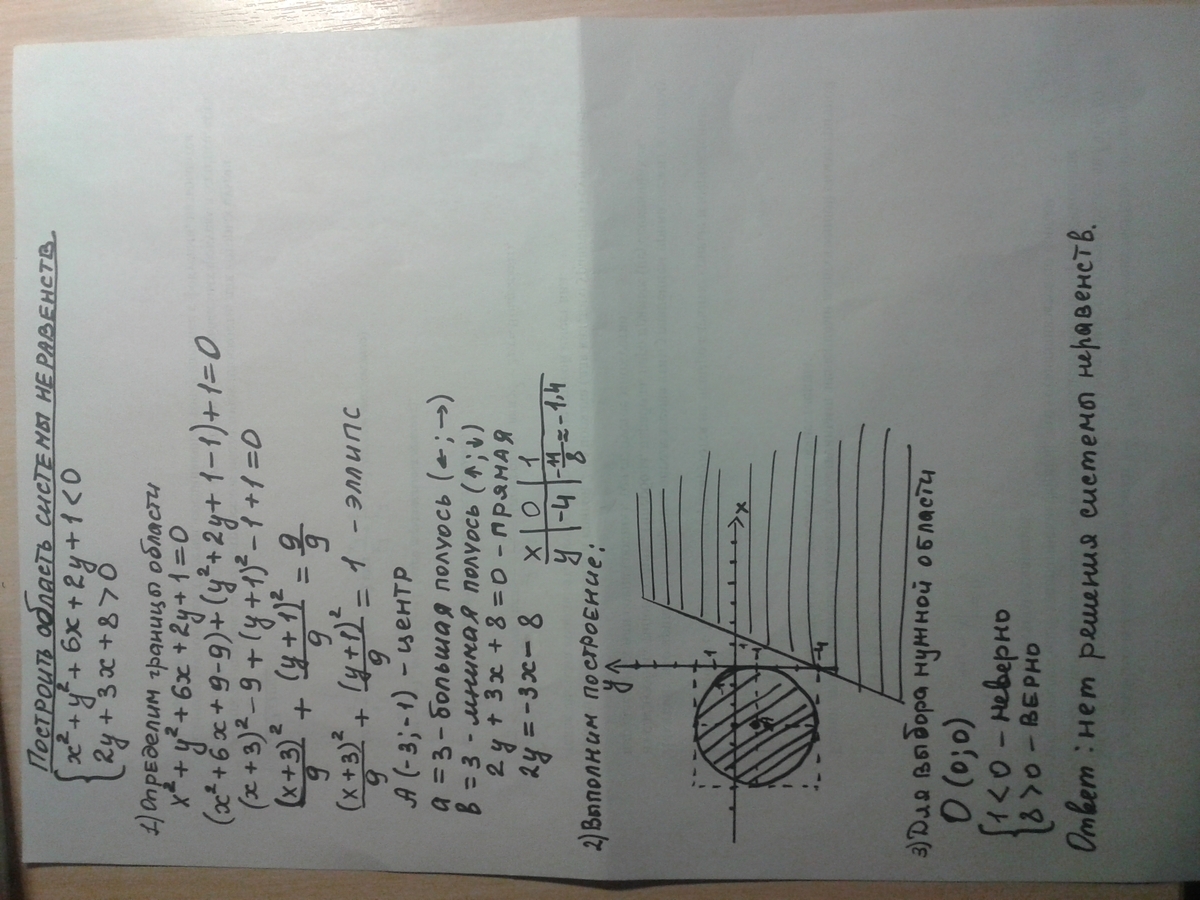 Построить область системы неравенств
{ x² + y² + 6x + 2y + 1 < 0
{ 2y + 3x + 8 > 0
1) Определим границы области
x² + y² + 6x + 2y + 1 = 0
(x² + 6x + 9 - 9) + (y² + 2y + 1 - 1) + 1 = 0
(x + 3)² - 9 + (y + 1)² - 1 + 1 = 0
(x + 3)²/9 + (y + 1)²/9 = 9/9
(x + 3)²/9 + (y + 1)²/9 = 1 - эллипс
A (-3; -1) - центр
a = 3 - большая полуось (←; →)
в = 3 - мнимая полуось (↑; ↓)
2y + 3x + 8 = 0 - прямая
2y = -3x - 8
x | 0 | 1
y | -4 | -11/8 ≈ -1,4
2) Выполним построение:
y
x
1
-1
-1
-4
A
3) Для выбора нужной области
О (0; 0)
{ 1 < 0 - неверно
{ 8 > 0 - ВЕРНО
Ответ: нет решения системы неравенств.